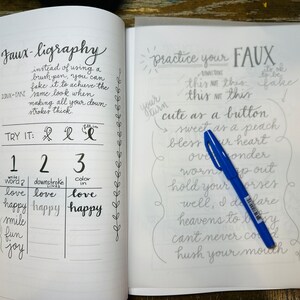 Faux-ligraphy
instead of using a
brush pen, you can
fake it to achieve the
same look when
making all your down
strokes thick.
TRY IT:
1 2 3
downstroke color in
love love love
happy happy happy
smile
fun
joy
practice your FAUX
this not this
this not this
your turn
cute as a button
sweet as a peach
bless your heart
over yonder
worn up out
hold your horses
well, I declare
heavens to betsy
cant never could
hush your mouth